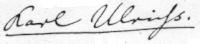 Karl Ulrichs.